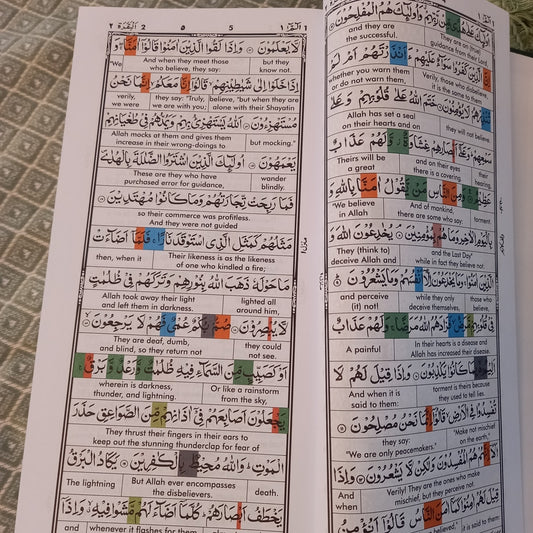 البقرة ٢
أُولَٰئِكَ عَلَىٰ هُدًى مِّن رَّبِّهِمْ وَأُولَٰئِكَ هُمُ الْمُفْلِحُونَ ۝
They are on (true)
guidance from their Lord,
and they are
the successful.
إِنَّ الَّذِينَ كَفَرُوا سَوَاءٌ عَلَيْهِمْ ءَأَنذَرْتَهُمْ أَمْ لَمْ
Verily, those who disbelieve,
it is the same to them
whether you warn them
or do not warn them,
تُنذِرْهُمْ لَا يُؤْمِنُونَ ۝ خَتَمَ اللَّهُ عَلَىٰ قُلُوبِهِمْ وَعَلَىٰ
they will not believe.
Allah has set a seal
on their hearts and on
سَمْعِهِمْ وَعَلَىٰ أَبْصَارِهِمْ غِشَاوَةٌ وَلَهُمْ عَذَابٌ
their
hearing,
and on their eyes
there is a covering
Theirs will be
a great
عَظِيمٌ ۝ وَمِنَ النَّاسِ مَن يَقُولُ آمَنَّا بِاللَّهِ وَ
torment.
And of mankind,
there are some who say:
"We believe
in Allah
بِالْيَوْمِ الْآخِرِ وَمَا هُم بِمُؤْمِنِينَ ۝ يُخَادِعُونَ اللَّهَ وَ
and the Last Day"
while in fact they believe not.
They (think to)
deceive Allah and
الَّذِينَ آمَنُوا وَمَا يَخْدَعُونَ إِلَّا أَنفُسَهُمْ وَمَا يَشْعُرُونَ ۝
those who
believe,
while they only
deceive themselves,
and perceive
(it) not!
فِي قُلُوبِهِم مَّرَضٌ فَزَادَهُمُ اللَّهُ مَرَضًا وَلَهُمْ عَذَابٌ
In their hearts is a disease and
Allah has increased their disease.
A painful
أَلِيمٌ بِمَا كَانُوا يَكْذِبُونَ ۝ وَإِذَا قِيلَ لَهُمْ لَا
torment is theirs because
they used to tell lies.
And when it is
said to them:
تُفْسِدُوا فِي الْأَرْضِ قَالُوا إِنَّمَا نَحْنُ مُصْلِحُونَ ۝
"Make not mischief
on the earth,"
they say:
"We are only peacemakers."
أَلَا إِنَّهُمْ هُمُ الْمُفْسِدُونَ وَلَٰكِن لَّا يَشْعُرُونَ ۝ وَإِذَا
Verily! They are the ones who make
mischief, but they perceive not.
And
when
قِيلَ لَهُمْ آمِنُوا كَمَا آمَنَ النَّاسُ قَالُوا أَنُؤْمِنُ
it is said to them:
البقرة ٢
2
5
5
لَا يَعْلَمُونَ ۝ وَإِذَا لَقُوا الَّذِينَ آمَنُوا قَالُوا آمَنَّا وَ
but they
know not.
And when they meet those
who believe, they say:
"We
إِذَا خَلَوْا إِلَىٰ شَيَاطِينِهِمْ قَالُوا إِنَّا مَعَكُمْ إِنَّمَا نَحْنُ
believe," but when they are
alone with their Shayatin
they say: "Truly,
we are with you;
verily,
we were
مُسْتَهْزِئُونَ ۝ اللَّهُ يَسْتَهْزِئُ بِهِمْ وَيَمُدُّهُمْ فِي طُغْيَانِهِمْ
but mocking."
Allah mocks at them and gives them
increase in their wrong-doings to
يَعْمَهُونَ ۝ أُولَٰئِكَ الَّذِينَ اشْتَرَوُا الضَّلَالَةَ بِالْهُدَىٰ
wander
blindly.
These are they who have
purchased error for guidance,
فَمَا رَبِحَت تِّجَارَتُهُمْ وَمَا كَانُوا مُهْتَدِينَ ۝
so their commerce was profitless.
And they were not guided
مَثَلُهُمْ كَمَثَلِ الَّذِي اسْتَوْقَدَ نَارًا فَلَمَّا أَضَاءَتْ
Their likeness is as the likeness
of one who kindled a fire;
then, when it
مَا حَوْلَهُ ذَهَبَ اللَّهُ بِنُورِهِمْ وَتَرَكَهُمْ فِي ظُلُمَاتٍ
lighted all
around him,
Allah took away their light
and left them in darkness.
لَّا يُبْصِرُونَ ۝ صُمٌّ بُكْمٌ عُمْيٌ فَهُمْ لَا يَرْجِعُونَ ۝
they could
not see.
They are deaf, dumb,
and blind, so they return not
أَوْ كَصَيِّبٍ مِّنَ السَّمَاءِ فِيهِ ظُلُمَاتٌ وَرَعْدٌ وَبَرْقٌ
Or like a rainstorm
from the sky,
wherein is darkness,
thunder, and lightning.
يَجْعَلُونَ أَصَابِعَهُمْ فِي آذَانِهِم مِّنَ الصَّوَاعِقِ حَذَرَ
They thrust their fingers in their ears to
keep out the stunning thunderclap for fear of
الْمَوْتِ وَاللَّهُ مُحِيطٌ بِالْكَافِرِينَ ۝ يَكَادُ الْبَرْقُ
death.
But Allah ever encompasses
the disbelievers.
The lightning
يَخْطَفُ أَبْصَارَهُمْ كُلَّمَا أَضَاءَ لَهُم مَّشَوْا فِيهِ وَإِذَا
whenever it flashes for them,
and